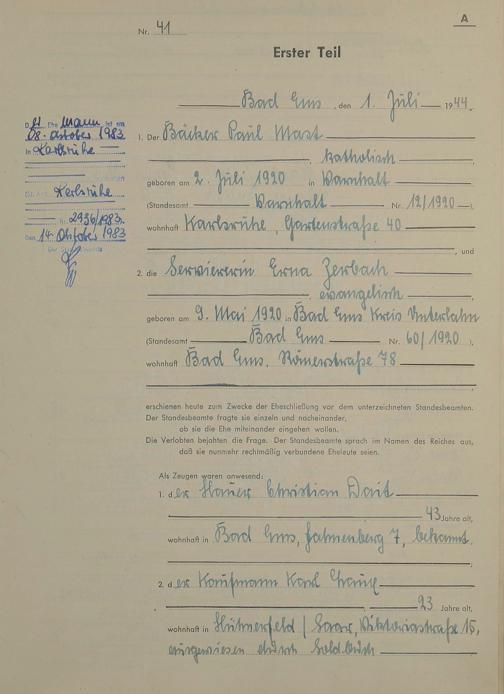 A
Nr. 41
Erster Teil
Bad Ems, den 1. Juli 1944.
Der Ehe Mann ist am
08. Oktober 1983
in Karlsruhe
Karlsruhe
Nr. 2936/1983.
Den 14. Oktober 1983
1. Der Bäcker Paul Mast
, katholisch,
geboren am 2. Juli 1920 in Varnhalt
(Standesamt Varnhalt Nr. 12/1920),
wohnhaft Karlsruhe, Gartenstraße 40
, und
2. die Serviererin Erna Zerbach
, evangelisch,
geboren am 9. Mai 1920 in Bad Ems Kreis Unterlahn
(Standesamt Bad Ems Nr. 60/1920),
wohnhaft Bad Ems, Römerstraße 78
erschienen heute zum Zwecke der Eheschließung vor dem unterzeichneten Standesbeamten.
Der Standesbeamte fragte sie einzeln und nacheinander,
ob sie die Ehe miteinander eingehen wollen.
Die Verlobten bejahten die Frage. Der Standesbeamte sprach im Namen des Reiches aus,
daß sie nunmehr rechtmäßig verbundene Eheleute seien.
Als Zeugen waren anwesend:
1. der Hauer Christian
43 Jahre alt,
wohnhaft in Bad Ems, 7, bekannt.
2. der Kaufmann Karl
23 Jahre alt,
wohnhaft in / Saar, Viktoriastraße 15,
ausgewiesen durch Soldbuch